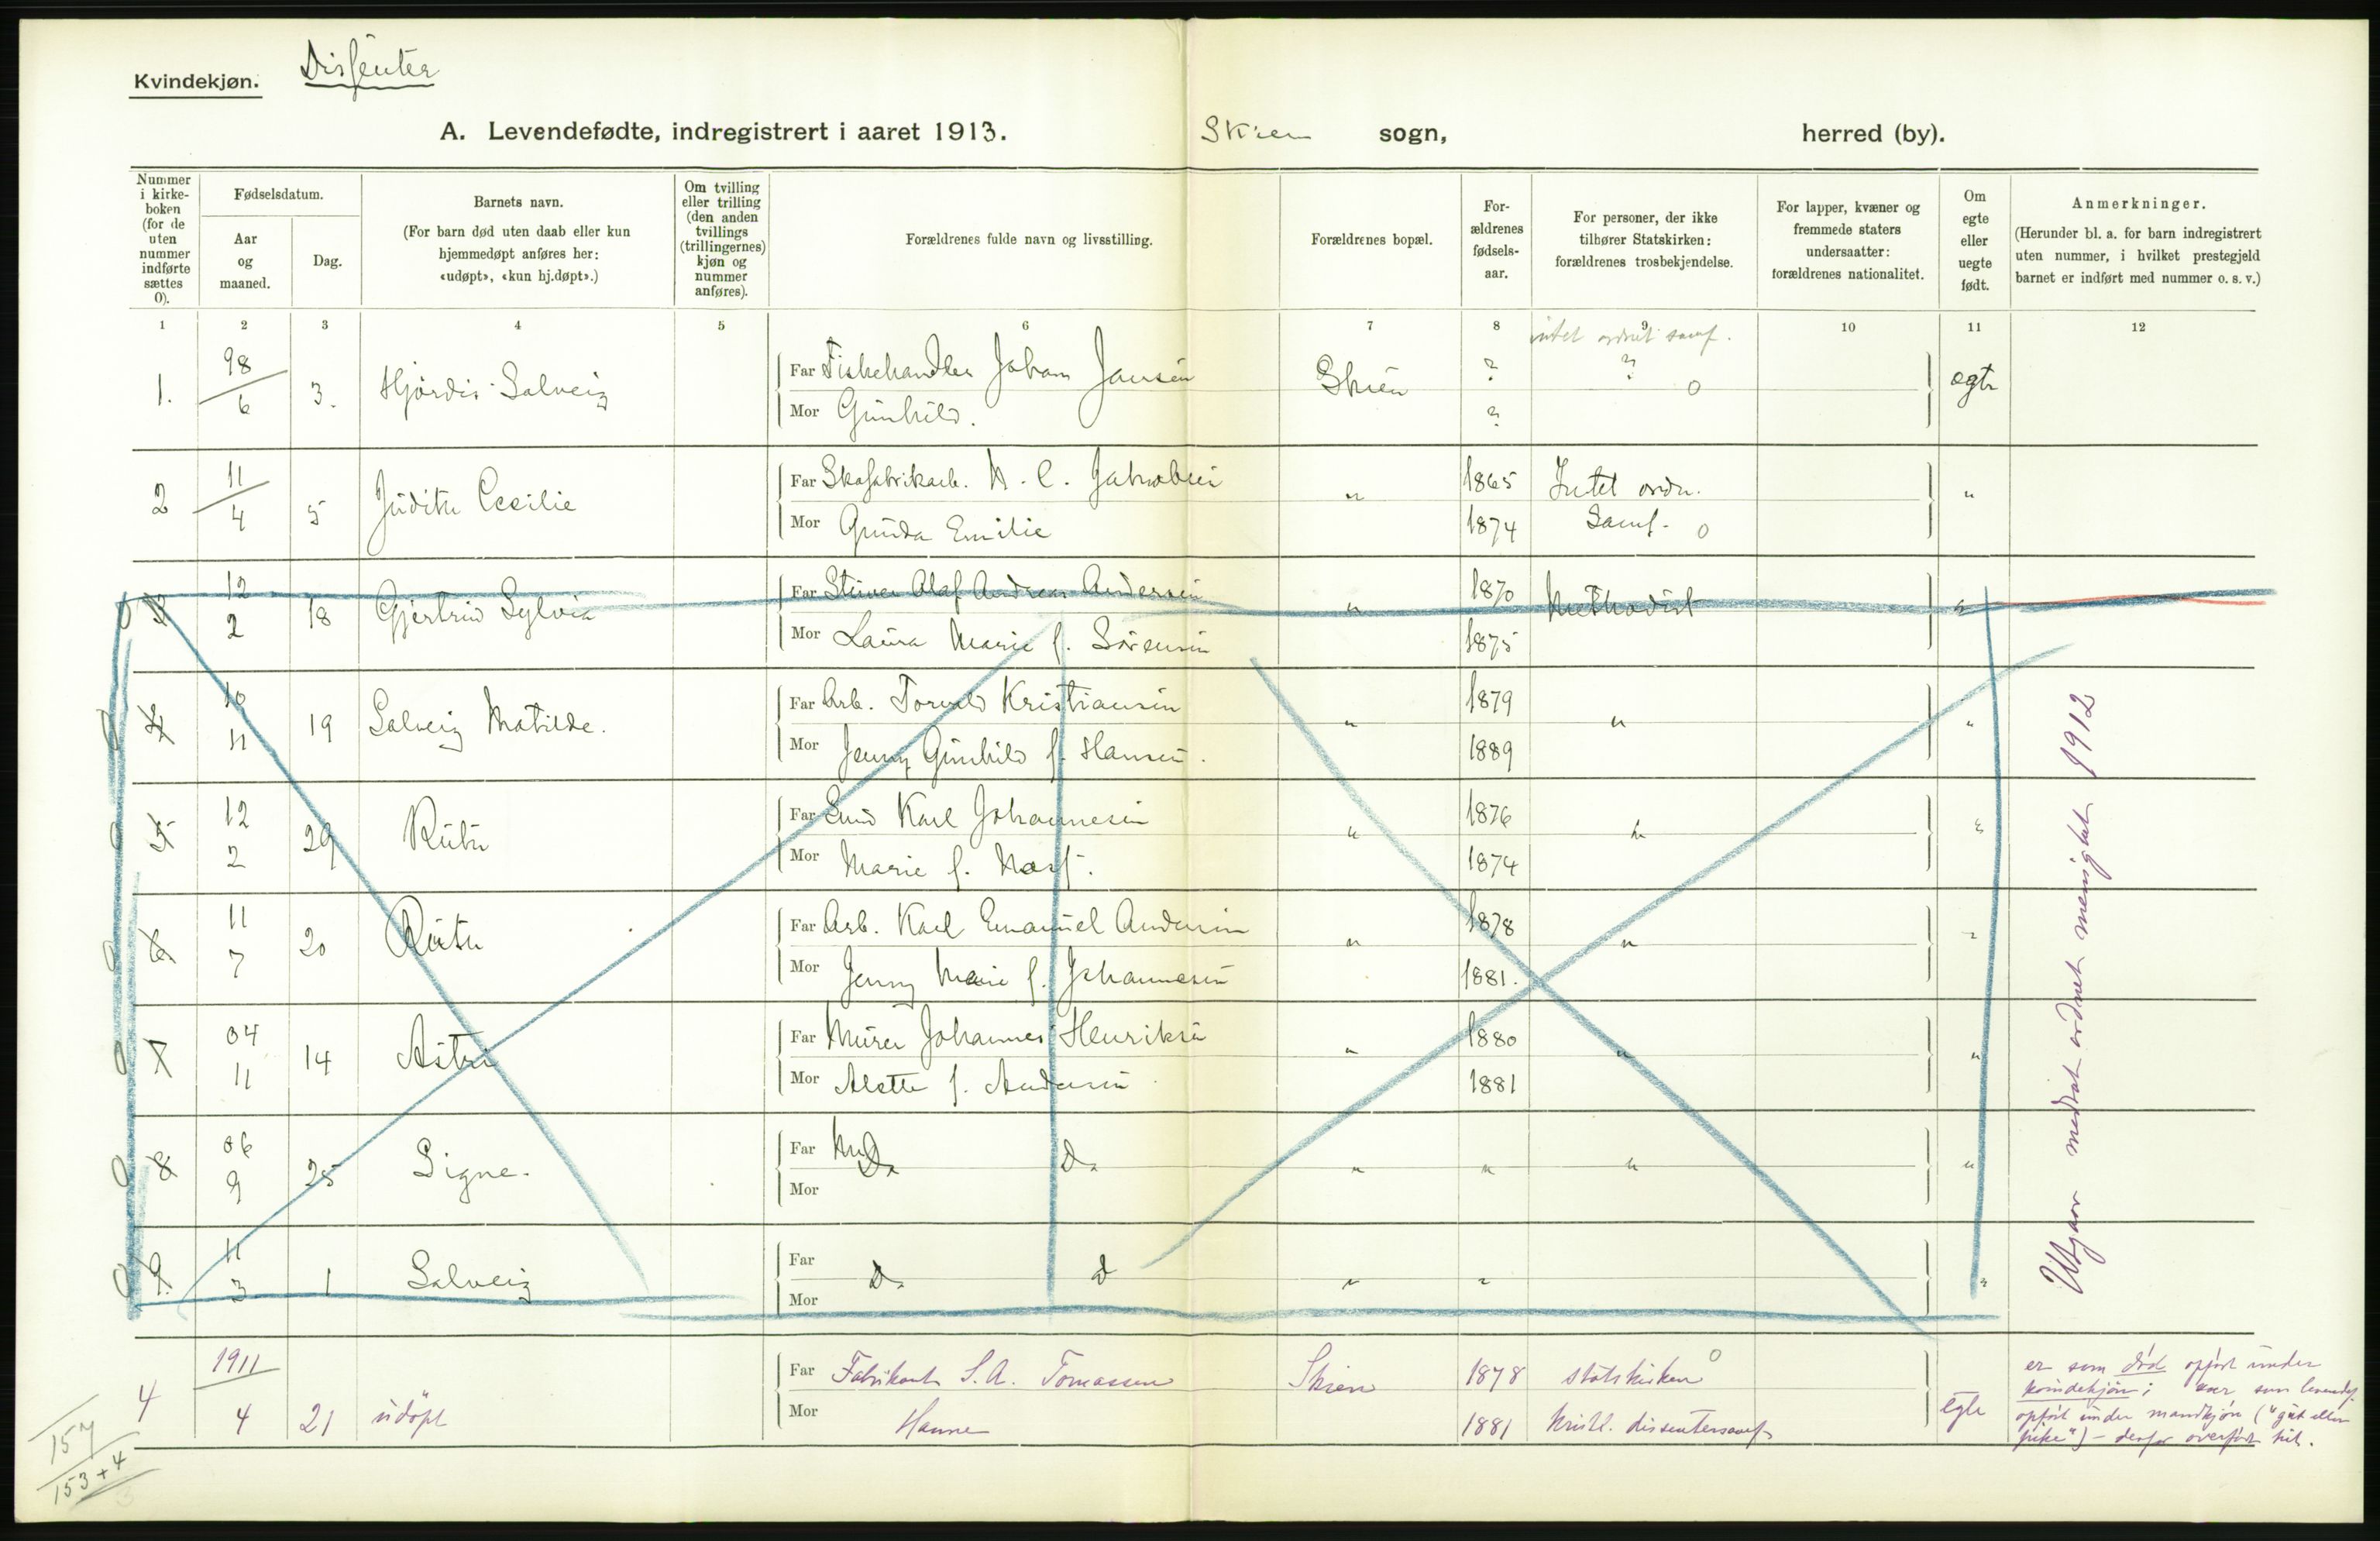 Kvindekjøn. Dissenter
A. Levendefødte, indregistrert i aaret 1913. Skien sogn, herred (by).
Nummer i kirke-boken (for de uten nummer indførte sættes 0).
Fødselsdatum.
Aar og maaned.
Dag.
Barnets navn.
(For barn død uten daab eller kun hjemmedøpt anføres her: «udøpt», «kun hj.døpt».)
Om tvilling eller trilling (den anden tvillings (trillingernes) kjøn og nummer anføres).
Forældrenes fulde navn og livsstilling.
Forældrenes bopæl.
For-ældrenes fødsels-aar.
For personer, der ikke tilhører Statskirken: forældrenes trosbekjendelse.
For lapper, kvæner og fremmede staters undersaatter: forældrenes nationalitet.
Om egte eller uegte født.
Anmerkninger.
(Herunder bl. a. for barn indregistrert uten nummer, i hvilket prestegjeld barnet er indført med nummer o. s. v.)
1 2 3 4 5 6 7 8 9 10 11 12
intet ordnet samf.
1. 98/6 3. Hjördis Solveig Far Fiskehandler Johan Jansen Skien ? ? 0 egte
Mor Gunhild. ?
2 11/4 5 Judith Cecilie Far Skofabrikarb. H. C. Jakobsen " 1865 Intet ordn. "
Mor Gunda Emilie 1874 Samf. 0
0 3 12 2 18 Gjertrud Sylvia Far Stuver Olaf Andreas Andersen " 1870 Methodist "
Mor Laura Marie f. Sörensen 1875
0 4 10 11 19 Solveig Matilde. Far Arb. Torvald Kristiansen " 1879 " "
Mor Jenny Gunhild f. Hansen. 1889
0 5 12 2 29 Ruth Far Karl Johannesen " 1876 " "
Mor Marie f. 1874
0 6 11 7 20 Ruth Far Arb. Karl Emanuel Andersen " 1878 " "
Mor Jenny Marie f. Johannesen 1881.
0 7 04 11 14 Astri Far Murer Johannes Henriksen " 1880 " "
Mor Alette f. Andersen 1881
0 8 06 9 25 Signe. Far Do Do " " " "
Mor
0 9. 11 3 1 Solveig Far Do Do " " "
Mor
Utgaar medtat ordnet menighet 1912
4 1911 4 21 udöpt Far Fabrikant S. A. Tomassen Skien 1878 statskirken 0 egte
Mor Hanne 1881 kristl. dissentersamf.
er som död opfört under
kvindekjön; som levendef.
opfört under mandkjön ("gut eller
pike") - derfor overfört hit.
157
153+4
3